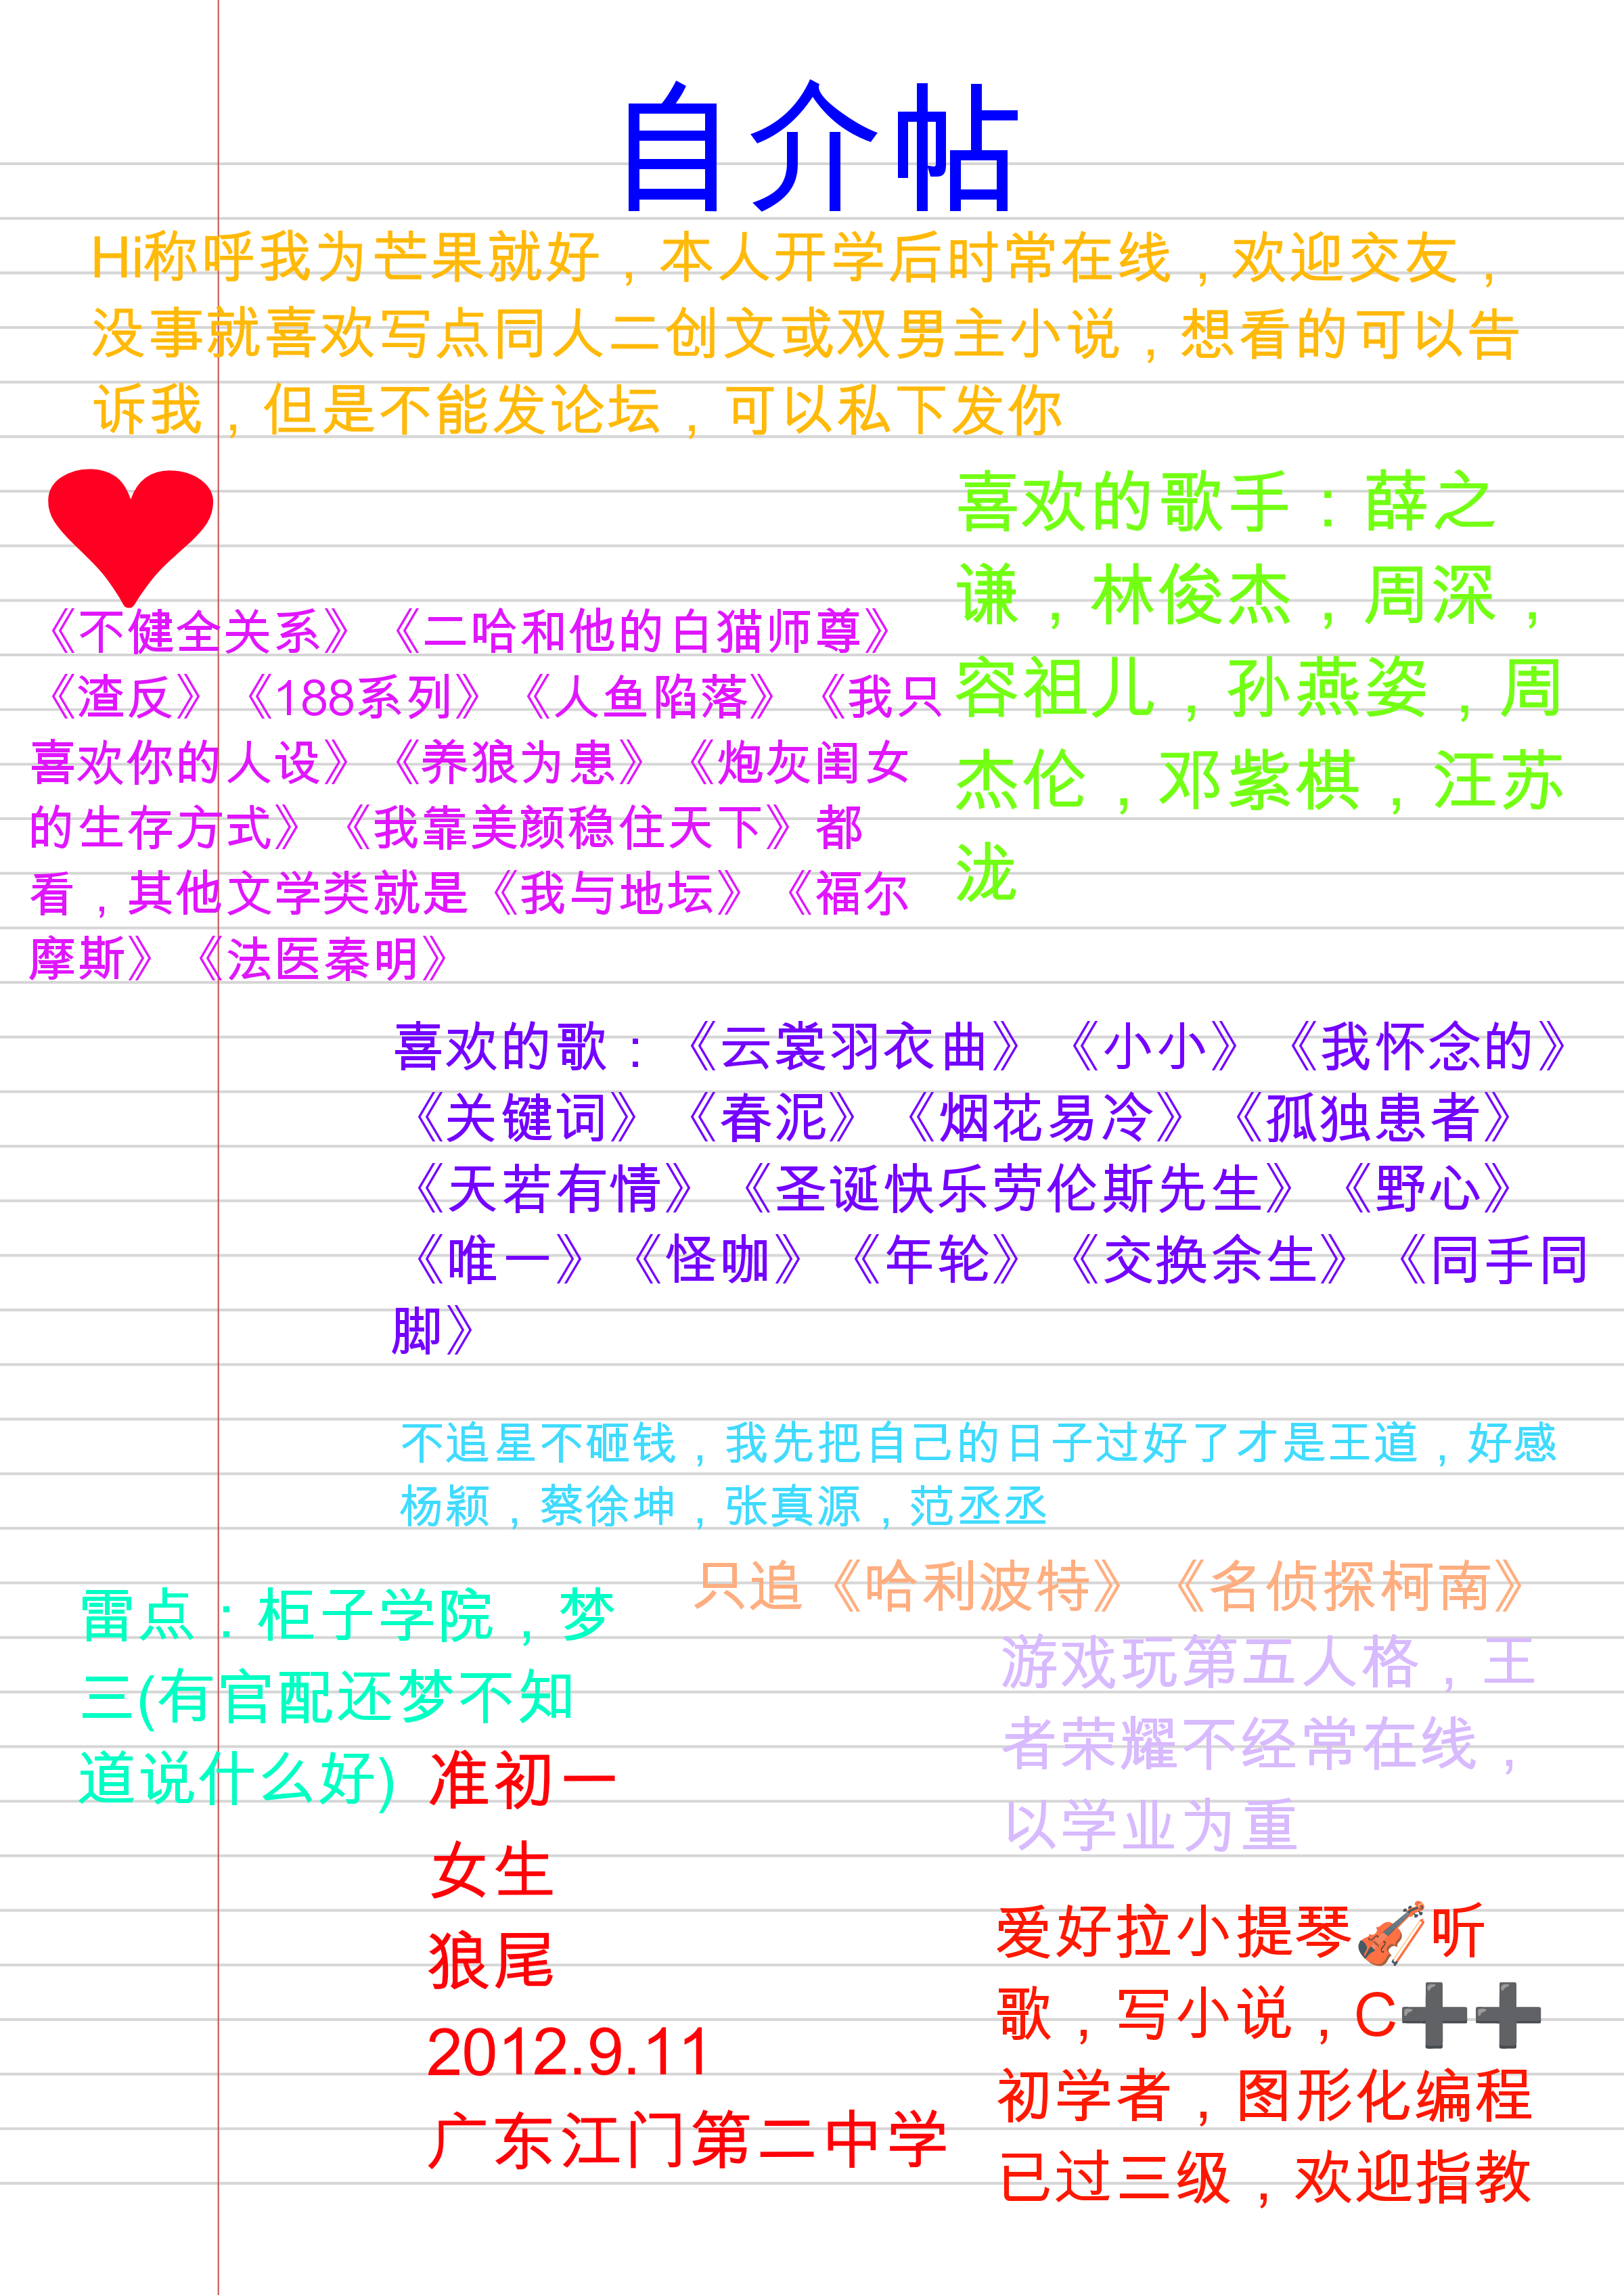 自介帖
Hi称呼我为芒果就好，本人开学后时常在线，欢迎交友，
没事就喜欢写点同人二创文或双男主小说，想看的可以告
诉我，但是不能发论坛，可以私下发你
喜欢的歌手：薛之
谦，林俊杰，周深，
容祖儿，孙燕姿，周
杰伦，邓紫棋，汪苏
泷
《不健全关系》《二哈和他的白猫师尊》
《渣反》《188系列》《人鱼陷落》《我只
喜欢你的人设》《养狼为患》《炮灰闺女
的生存方式》《我靠美颜稳住天下》都
看，其他文学类就是《我与地坛》《福尔
摩斯》《法医秦明》
喜欢的歌：《云裳羽衣曲》《小小》《我怀念的》
《关键词》《春泥》《烟花易冷》《孤独患者》
《天若有情》《圣诞快乐劳伦斯先生》《野心》
《唯一》《怪咖》《年轮》《交换余生》《同手同
脚》
不追星不砸钱，我先把自己的日子过好了才是王道，好感
杨颖，蔡徐坤，张真源，范丞丞
只追《哈利波特》《名侦探柯南》
雷点：柜子学院，梦
三(有官配还梦不知
道说什么好)
游戏玩第五人格，王
者荣耀不经常在线，
以学业为重
准初一
女生
狼尾
2012.9.11
广东江门第二中学
爱好拉小提琴🎻听
歌，写小说，C➕➕
初学者，图形化编程
已过三级，欢迎指教